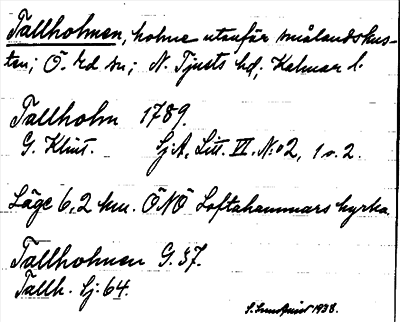 Tallholmen, holme utanför smålandskus-
ten; Ö. Ed sn; N. Tjusts hd; Kalmar l.
Tallholm 1789.
G. Klint. Sj.A. Litt. VI. No 2, 1 o. 2.
Läge 6,2 km. ÖNÖ Loftahammars kyrka.
Tallholmen G. 37.
Tallh. Sj. 64.
1938.